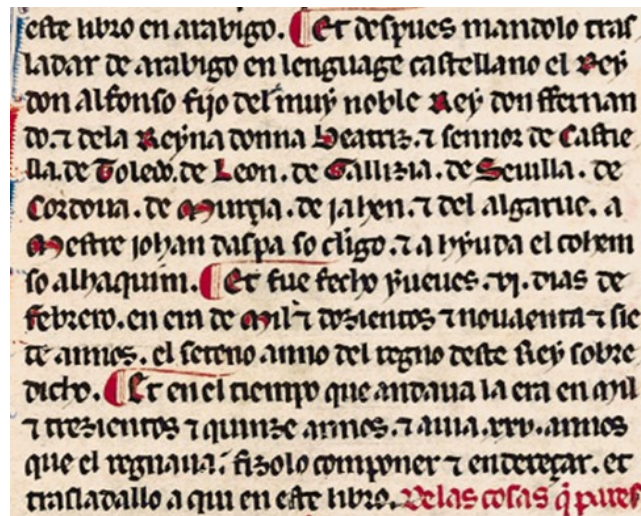 este libro en arabigo. Et despues mandolo tras
ladar de arabigo en lenguage castellano el Rey
don alfonso fijo del muy noble Rey don ffernan
do. ⁊ dela Reyna donna Beatriz. ⁊ sennor de Castie
lla. de Toledo. de Leon. de Gallizia. de Seuilla. de
Cordoua. de Murçia. de jahen. ⁊ del algarue. a
Mestre johan daspa so cl̃igo. ⁊ a hyuda el cohem
so alhaquim. Et fue fecho yueues. vj. dias de
febrero. en era de Mil ⁊ dozientos ⁊ nouaenta ⁊ sie
te annos. el seteno anno del regno deste Rey sobre
dicho. Et en el tiempo que andaua la era en mill
⁊ trezientos ⁊ quinze annos. ⁊ auia .xxv. annos
que el regnaua. fizolo componer ⁊ endereçar. et
trasladallo a qui en este libro. Delas cosas q̃ pares